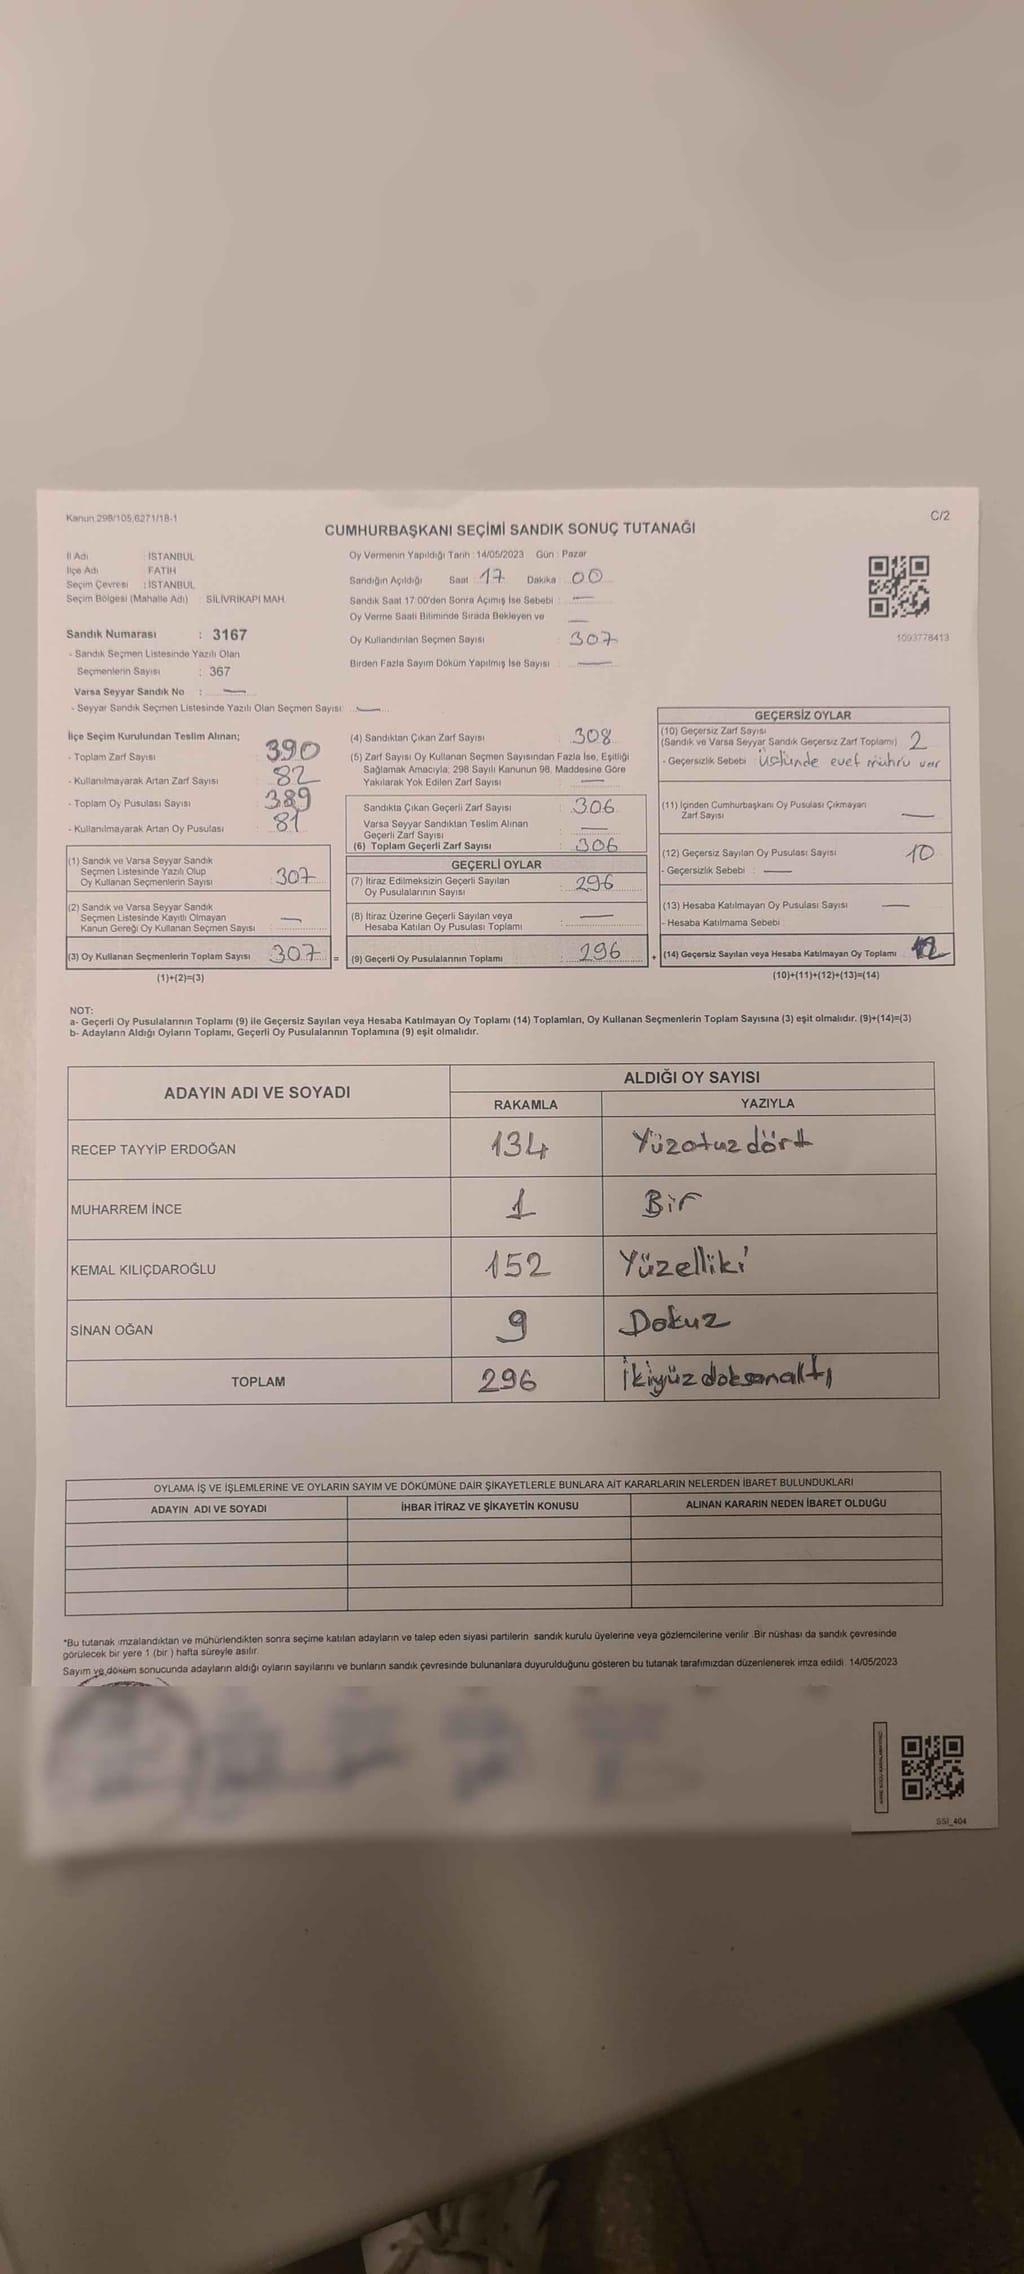 Kanun 298/105,6271/18-1
C/2
CUMHURBAŞKANI SEÇİMİ SANDIK SONUÇ TUTANAĞI
İl Adı : İSTANBUL
İlçe Adı : FATİH
Seçim Çevresi : İSTANBUL
Seçim Bölgesi (Mahalle Adı) : SİLİVRİKAPI MAH.
Oy Vermenin Yapıldığı Tarih : 14/05/2023 Gün : Pazar
Sandığın Açıldığı Saat : 17 Dakika : 00
Sandık Saat 17:00'den Sonra Açımış İse Sebebi : —
Oy Verme Saati Bitiminde Sırada Bekleyen ve —
Oy Kullandırılan Seçmen Sayısı : 307
Birden Fazla Sayım Döküm Yapılmış İse Sayısı : —
1093778413
Sandık Numarası : 3167
- Sandık Seçmen Listesinde Yazılı Olan
Seçmenlerin Sayısı : 367
Varsa Seyyar Sandık No : —
- Seyyar Sandık Seçmen Listesinde Yazılı Olan Seçmen Sayısı: —
İlçe Seçim Kurulundan Teslim Alınan;
- Toplam Zarf Sayısı : 390
- Kullanılmayarak Artan Zarf Sayısı : 82
- Toplam Oy Pusulası Sayısı : 389
- Kullanılmayarak Artan Oy Pusulası : 81
(1) Sandık ve Varsa Seyyar Sandık
Seçmen Listesinde Yazılı Olup
Oy Kullanan Seçmenlerin Sayısı : 307
(2) Sandık ve Varsa Seyyar Sandık
Seçmen Listesinde Kayıtlı Olmayan
Kanun Gereği Oy Kullanan Seçmen Sayısı : —
(3) Oy Kullanan Seçmenlerin Toplam Sayısı : 307
(1)+(2)=(3)
(4) Sandıktan Çıkan Zarf Sayısı : 308
(5) Zarf Sayısı Oy Kullanan Seçmen Sayısından Fazla İse, Eşitliği
Sağlamak Amacıyla, 298 Sayılı Kanunun 98. Maddesine Göre
Yakılarak Yok Edilen Zarf Sayısı : —
Sandıkta Çıkan Geçerli Zarf Sayısı : 306
Varsa Seyyar Sandıktan Teslim Alınan
Geçerli Zarf Sayısı : —
(6) Toplam Geçerli Zarf Sayısı : 306
GEÇERLİ OYLAR
(7) İtiraz Edilmeksizin Geçerli Sayılan
Oy Pusulalarının Sayısı : 296
(8) İtiraz Üzerine Geçerli Sayılan veya
Hesaba Katılan Oy Pusulası Toplamı : —
= (9) Geçerli Oy Pusulalarının Toplamı : 296
GEÇERSİZ OYLAR
(10) Geçersiz Zarf Sayısı
(Sandık ve Varsa Seyyar Sandık Geçersiz Zarf Toplamı) 2
- Geçersizlik Sebebi : Üstünde evet mührü var
(11) İçinden Cumhurbaşkanı Oy Pusulası Çıkmayan
Zarf Sayısı —
(12) Geçersiz Sayılan Oy Pusulası Sayısı 10
- Geçersizlik Sebebi : —
(13) Hesaba Katılmayan Oy Pusulası Sayısı —
- Hesaba Katılmama Sebebi
+ (14) Geçersiz Sayılan veya Hesaba Katılmayan Oy Toplamı : 12
(10)+(11)+(12)+(13)=(14)
NOT:
a- Geçerli Oy Pusulalarının Toplamı (9) ile Geçersiz Sayılan veya Hesaba Katılmayan Oy Toplamı (14) Toplamları, Oy Kullanan Seçmenlerin Toplam Sayısına (3) eşit olmalıdır. (9)+(14)=(3)
b- Adayların Aldığı Oyların Toplamı, Geçerli Oy Pusulalarının Toplamına (9) eşit olmalıdır.
ADAYIN ADI VE SOYADI ALDIĞI OY SAYISI
RAKAMLA YAZIYLA
RECEP TAYYİP ERDOĞAN 134 Yüzotuzdört
MUHARREM İNCE 1 Bir
KEMAL KILIÇDAROĞLU 152 Yüzelliki
SİNAN OĞAN 9 Dokuz
TOPLAM 296 İkiyüzdoksanaltı
OYLAMA İŞ VE İŞLEMLERİNE VE OYLARIN SAYIM VE DÖKÜMÜNE DAİR ŞİKAYETLERLE BUNLARA AİT KARARLARIN NELERDEN İBARET BULUNDUKLARI
ADAYIN ADI VE SOYADI İHBAR İTİRAZ VE ŞİKAYETİN KONUSU ALINAN KARARIN NEDEN İBARET OLDUĞU
*Bu tutanak imzalandıktan ve mühürlendikten sonra seçime katılan adayların ve talep eden siyasi partilerin sandık kurulu üyelerine veya gözlemcilerine verilir. Bir nüshası da sandık çevresinde
görülecek bir yere 1 (bir ) hafta süreyle asılır.
Sayım ve döküm sonucunda adayların aldığı oyların sayılarını ve bunların sandık çevresinde bulunanlara duyurulduğunu gösteren bu tutanak tarafımızdan düzenlenerek imza edildi. 14/05/2023
SSI_404